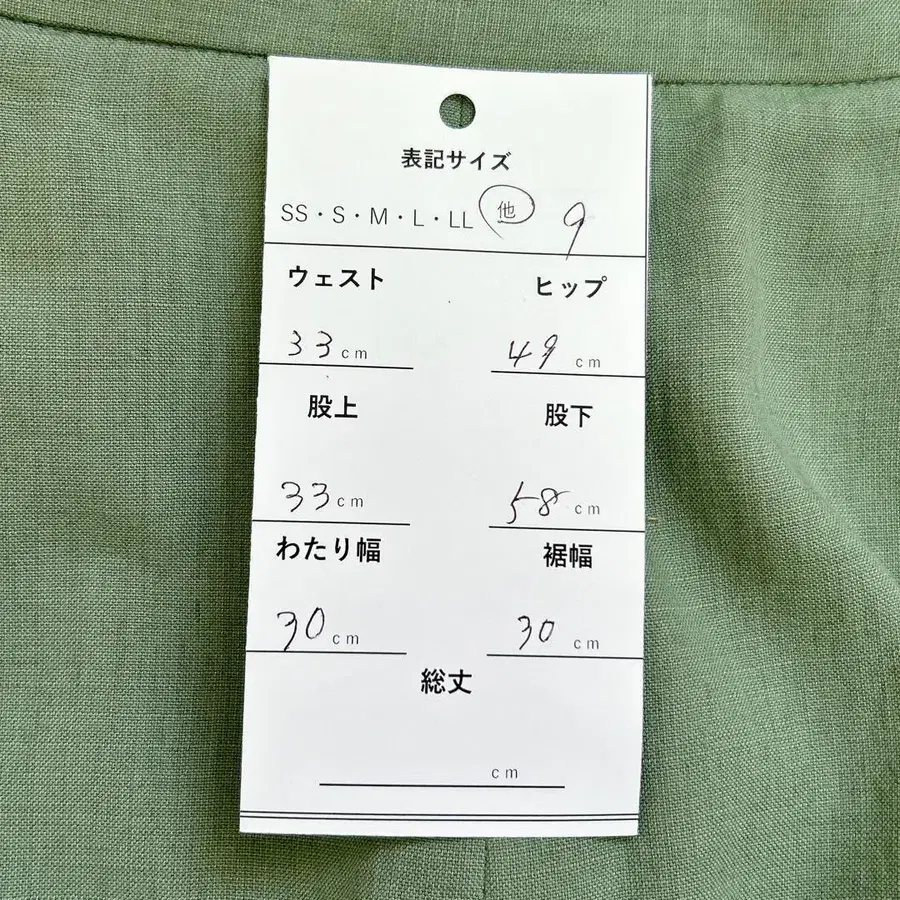 表記サイズ
SS・S・M・L・LL 他 9
ウェスト ヒップ
33cm 49cm
股上 股下
33cm 58cm
わたり幅 裾幅
30cm 30cm
総丈
cm